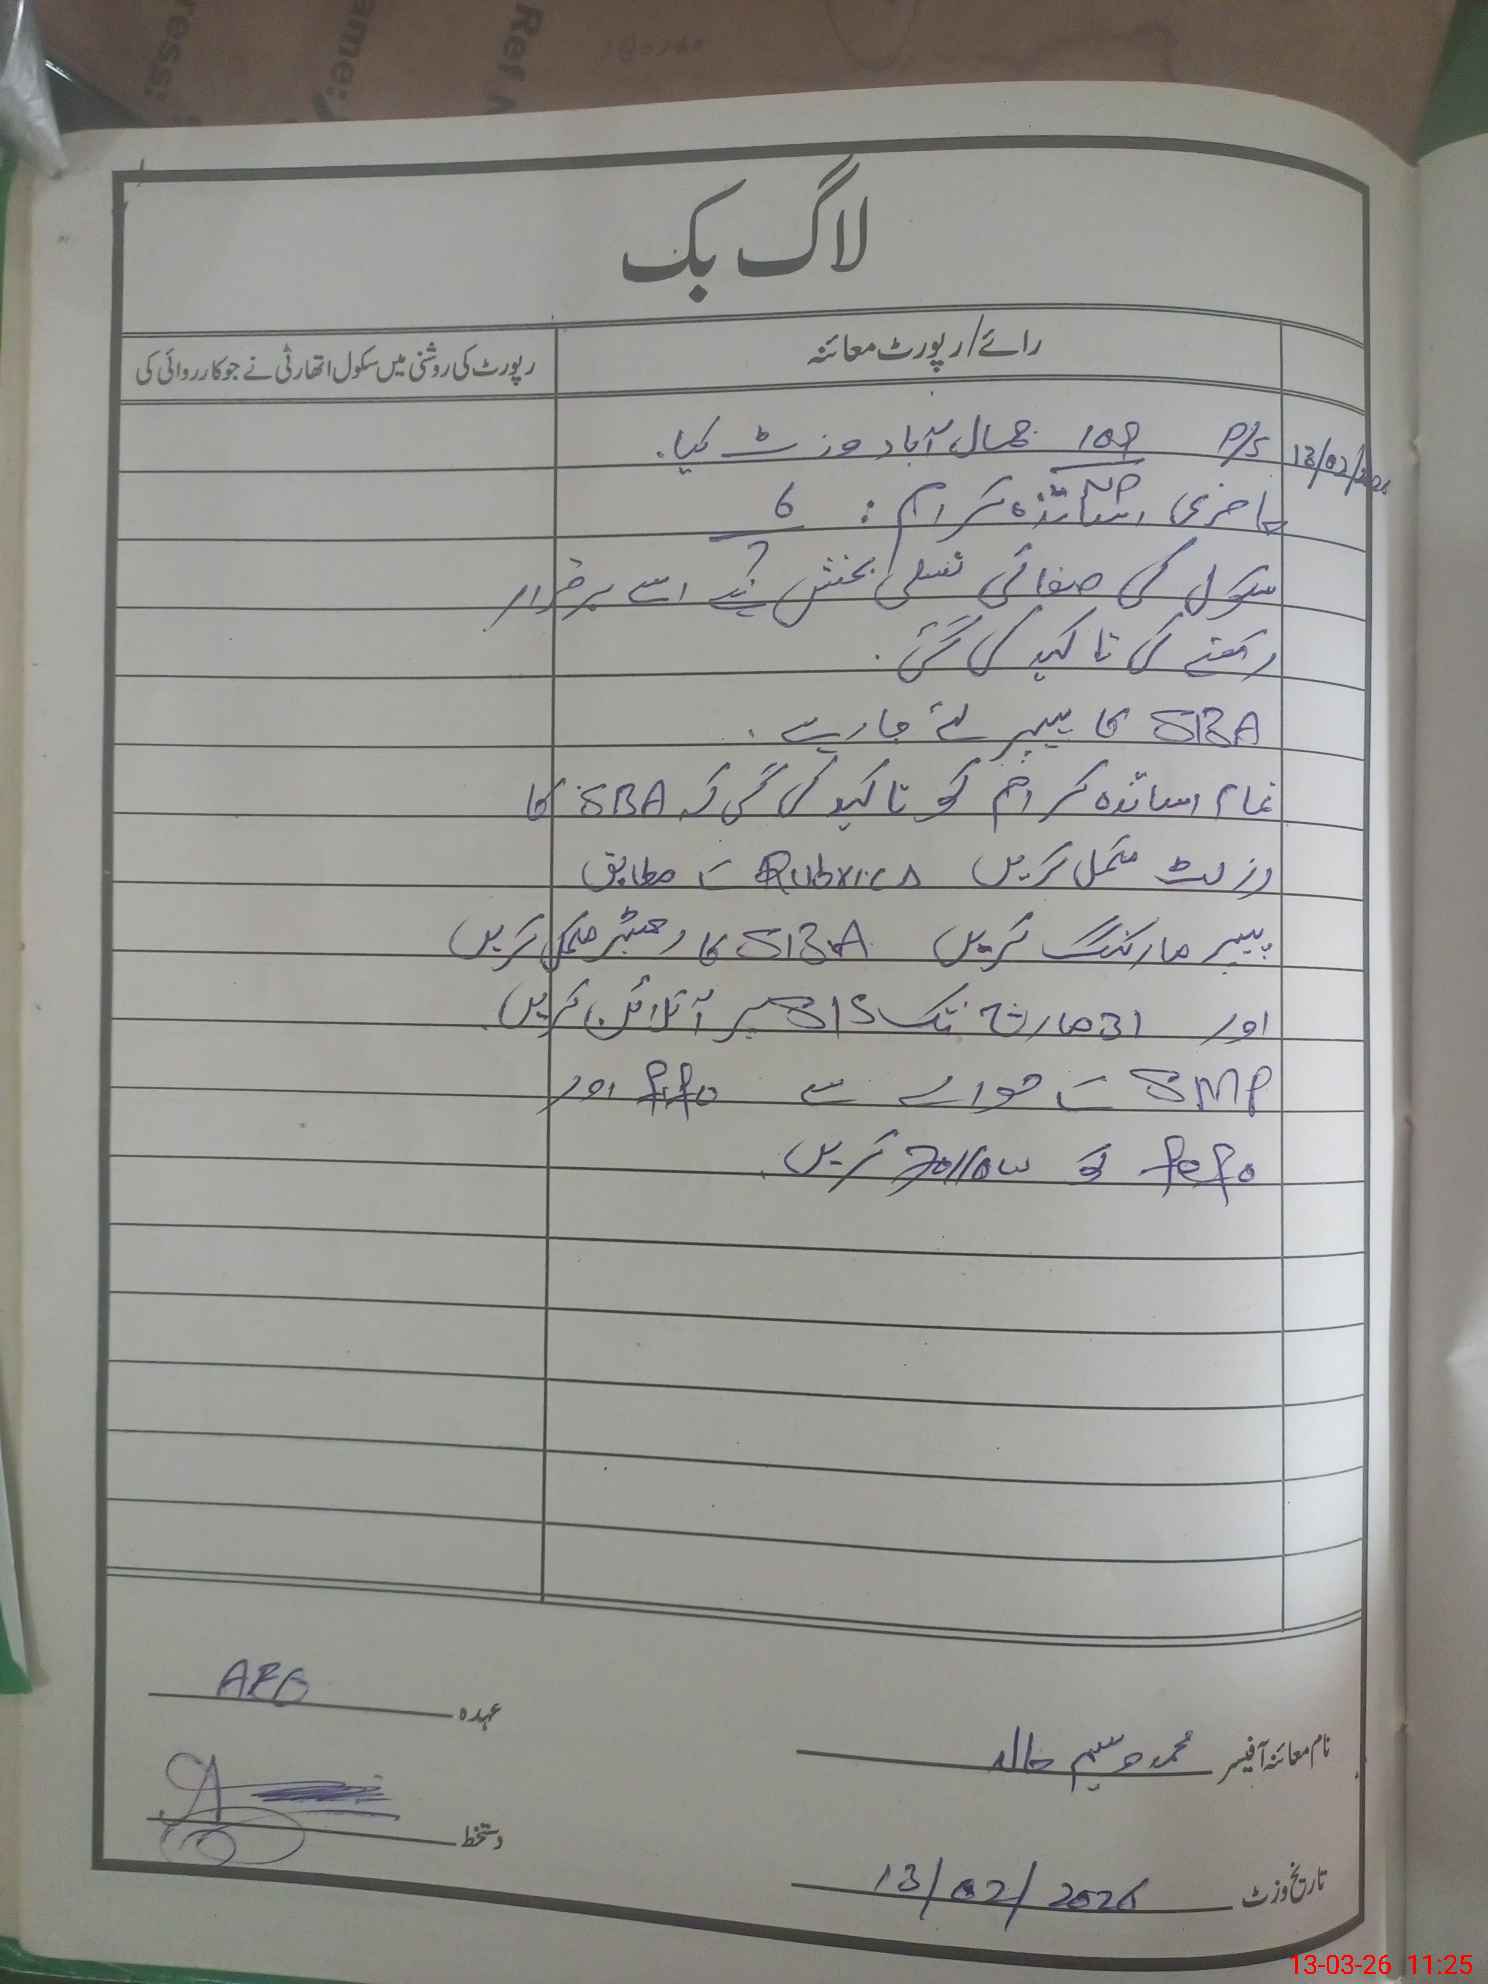 ress:
ame:
Ref
لاگ بک
رائے/رپورٹ معائنہ
رپورٹ کی روشنی میں سکول اتھارٹی نے جو کارروائی کی
13/02/2026
P/S 109 جمال آباد وزٹ کیا۔
NP
حاضری اساتذہ کرام : 6
7
سکول کی صفائی تسلی بخش ہے اسے برقرار
رکھنے کی تاکید کی گئی۔
SBA کا پیپر لئے جا رہے۔
تمام اساتذہ کرام کو تاکید کی گئی کہ SBA کا
وزٹ مکمل کریں Rubrics کے مطابق
پیپر مارکنگ کریں SBA کا رجسٹر مکمل کریں
اور 31 مارچ تک SIS پر آنلائن کریں۔
SMP کے حوالے سے fifo اور
fefo کو Follow کریں۔
عہدہ AEO
نام معائنہ آفیسر محمد وسیم خالد
دستخط
تاریخ وزٹ 13/02/2026
13-03-26 11:25